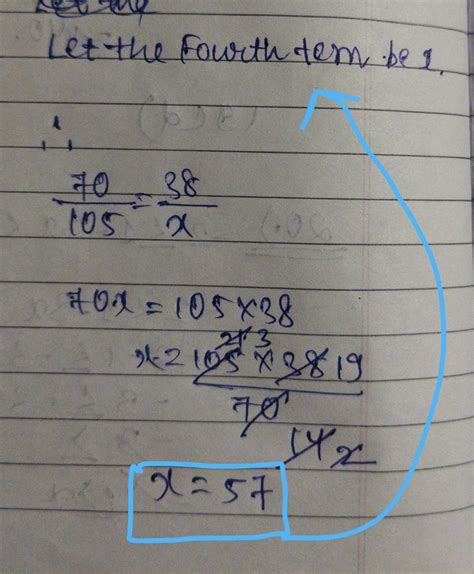 Let the Fourth term be x.
∴
70/105 = 38/x
70x = 105 × 38
x = 105 21 3 × 38 19
70
14 2
x = 57